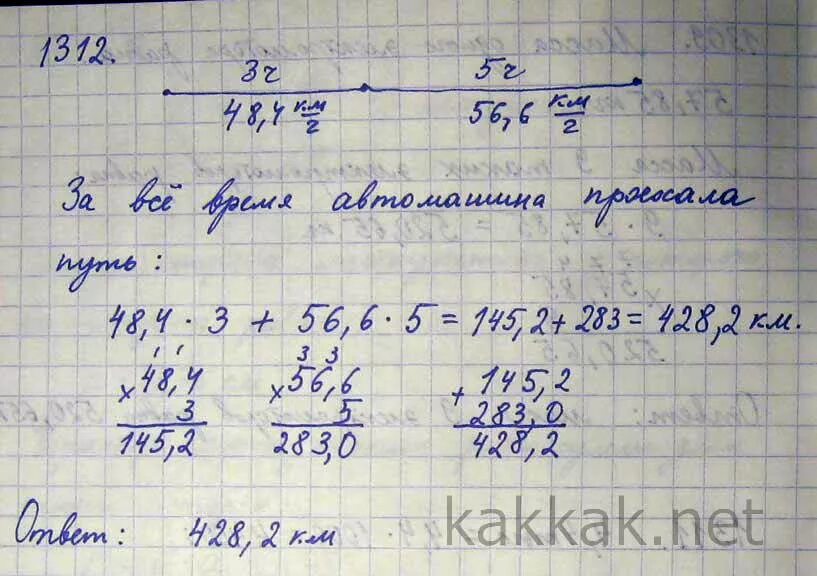 1312.
3ч 5ч
48,4 км/ч 56,6 км/ч
За всё время автомашина проехала
путь:
48,4 · 3 + 56,6 · 5 = 145,2 + 283 = 428,2 км.
1 1 3 3
×48,4 ×56,6 +145,2
3 5 283,0
145,2 283,0 428,2
Ответ: 428,2 км
kakkak.net